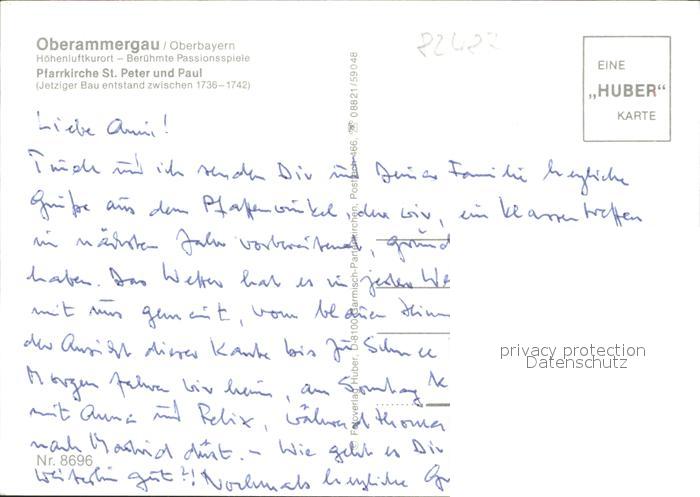 Oberammergau / Oberbayern
Höhenluftkurort – Berühmte Passionsspiele
Pfarrkirche St. Peter und Paul
(Jetziger Bau entstand zwischen 1736–1742)
82482
EINE
„HUBER"
KARTE
Liebe Anni!
und ich senden Dir und Deiner Familie herzliche
Grüße aus dem Pfaffenwinkel, den wir, ein Klassentreffen
im nächsten Jahr vorbereitend,
haben. Das Wetter hat es in jeder
mit uns gemeint, vom blauen
der Ansicht dieser Karte bis zu Schnee
Morgen fahren wir heim, am Sonntag
mit Anna und Felix, während Thomas
nach Madrid düst. – Wie geht es Dir
weiterhin gut?! Nochmals herzliche
© Fotoverlag Huber, D-8100 Garmisch-Partenkirchen, Postfach 466, ☏ 08821/59048
privacy protection
Datenschutz
Nr. 8696